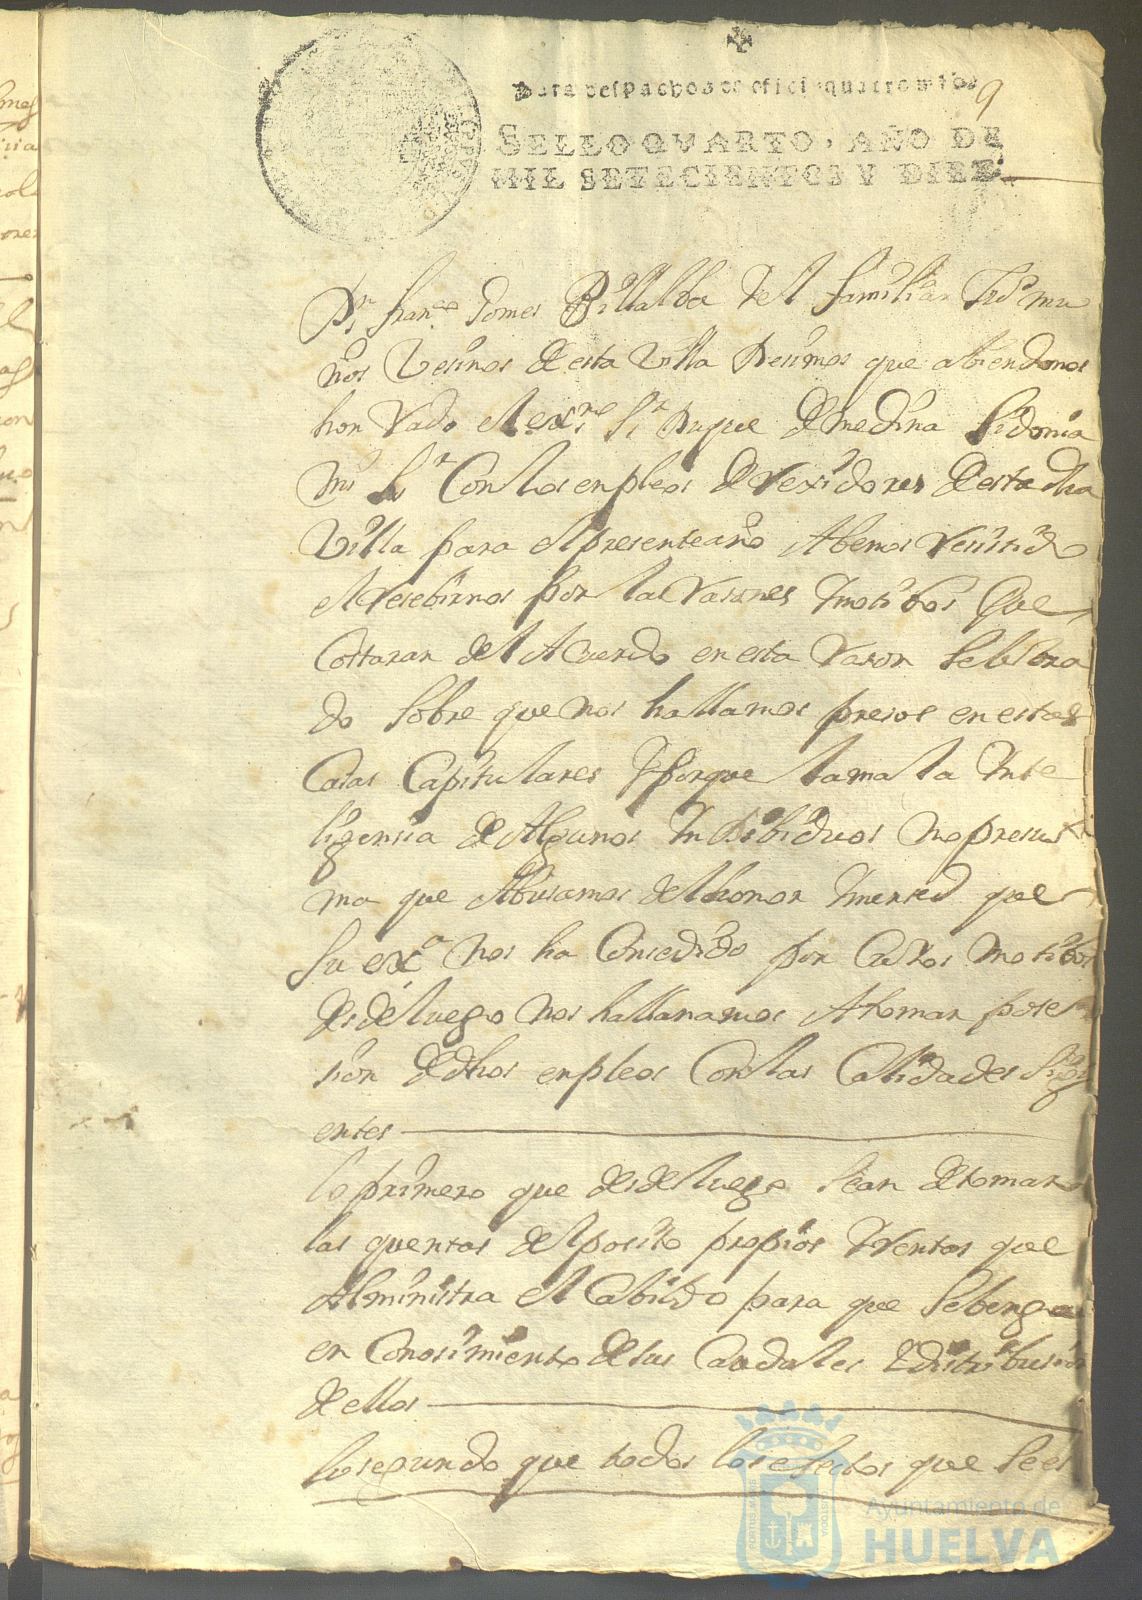 Para despachos de oficio quatro mrs
9
SELLO QVARTO, AÑO DE
MIL SETECIENTOS Y DIEZ.
Dn franco Gomes Billalba del familiar Mu
ños Vesinos de esta Villa Desimos que abiendonos
honrrado el exmo Sr Duque de medina Sidonia
mi Sr Con los enpleos de rexidores de esta dha
Villa para el presente año Abemos resistido
el resebirnos por las rasones y motibos que
Costaran del Acuerdo en esta rason Selebra
do sobre que nos hallamos presos en estas
Casas Capitulares y porque la mala Inte
ligensia de Algunos Indibiduos no presu
ma que Abusamos del honor y mersed que
Su exa nos ha Consedido por Cullos motibos
desde luego nos hallanamos A tomar pose
sion de dhos enpleos Con las Calidades sigui
entes
lo primero que desde luego sean de tomar
las quentas del posito propios y rentas que
Alministra el Cabildo para que se benga
en Conosimiento de sus Caudales y distribusion
de ellos
lo segundo que todos los efectos que se es
Ayuntamiento de
HUELVA